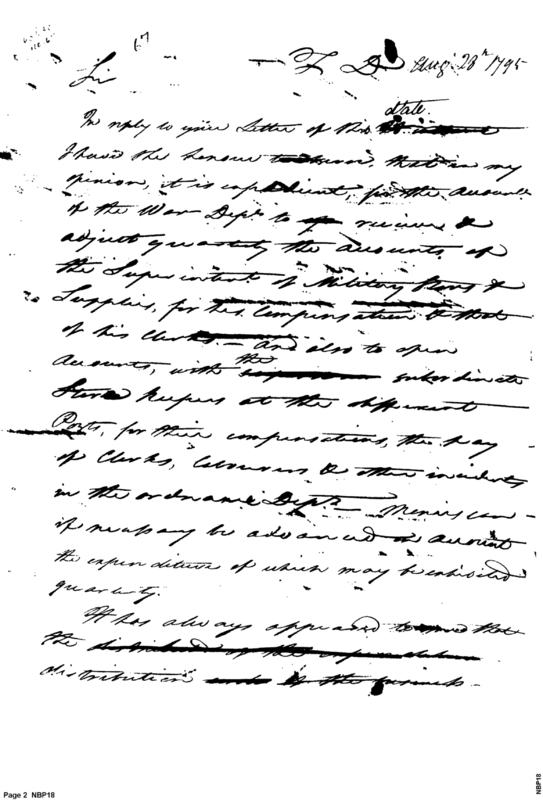 67
T D Augt 28th 1795
Sir
In reply to your Letter of this date
I have the honour that in my
opinion, it is expedient, for the Account.
of the War Dept. to receive &
adjust quarterly the accounts of
the Superintendt. of Military Stores &
Supplies, for his Compensation & that
of his Clerks, — and also to open
Accounts, with the subordinate
Store keepers at the different
Posts, for their compensations, the pay
of Clerks, labourers & other incidents
in the ordnance Dept. Monies can
if necessary be advanced on account
the expenditure of which may be exhibited
quarterly.
It has always appeared to that
the
distribution of the business
Page 2 NBP18
NBP18